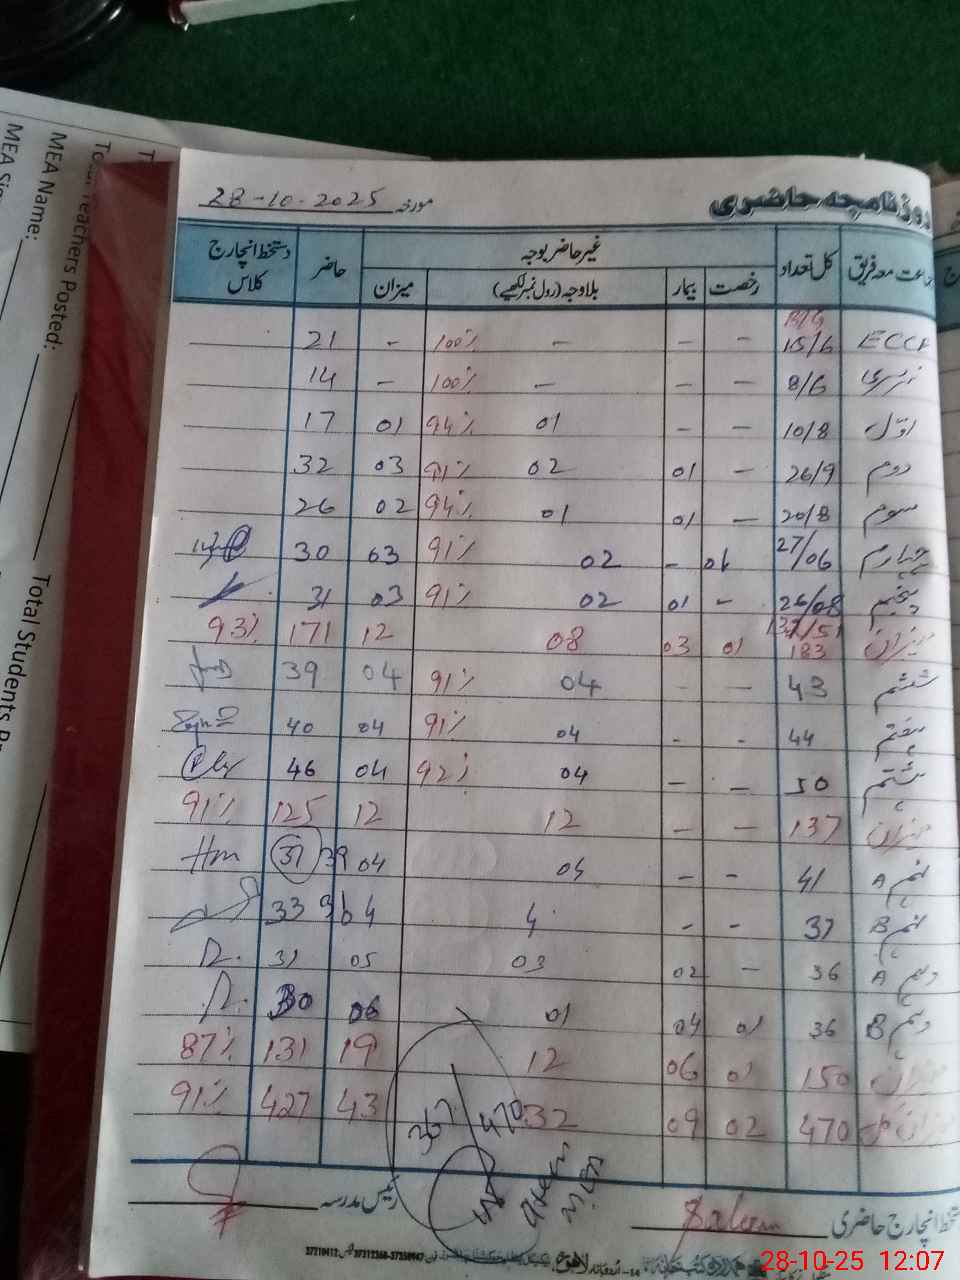 MEA Name:
Teachers Posted:
Total Students
روزنامچہ حاضری
مورخہ 28-10-2025
جماعت معہ فریق کل تعداد غیر حاضر بوجہ حاضر دستخط انچارج کلاس
رخصت بیمار بلاوجہ (رول نمبر لکھیے) میزان
B/G
ECCE 15/6 - - - 100% - 21
نرسری 8/6 - - - 100% - 14
اوّل 10/8 - - 01 94% 01 17
دوم 26/9 - 01 02 91% 03 32
سوم 20/8 - 01 01 94% 02 26
چہارم 27/06 01 - 02 91% 03 30
پنجم 26/08 - 01 02 91% 03 31
میزان 183 01 03 08 12 171 93%
ششم 43 - - 04 91% 04 39
ہفتم 44 - - 04 91% 04 40
ہشتم 50 - - 04 92% 04 46
میزان 137 - - 12 12 125 91%
نہم A 41 - - 04 04 37
نہم B 37 - - 4 4 33
دہم A 36 - 02 03 05 31
دہم B 36 01 04 01 06 30
میزان 150 01 06 12 19 131 87%
میزان کل 470 02 09 32 43 427 91%
470
دستخط انچارج حاضری Saleem رئیس مدرسہ
28-10-25 12:07